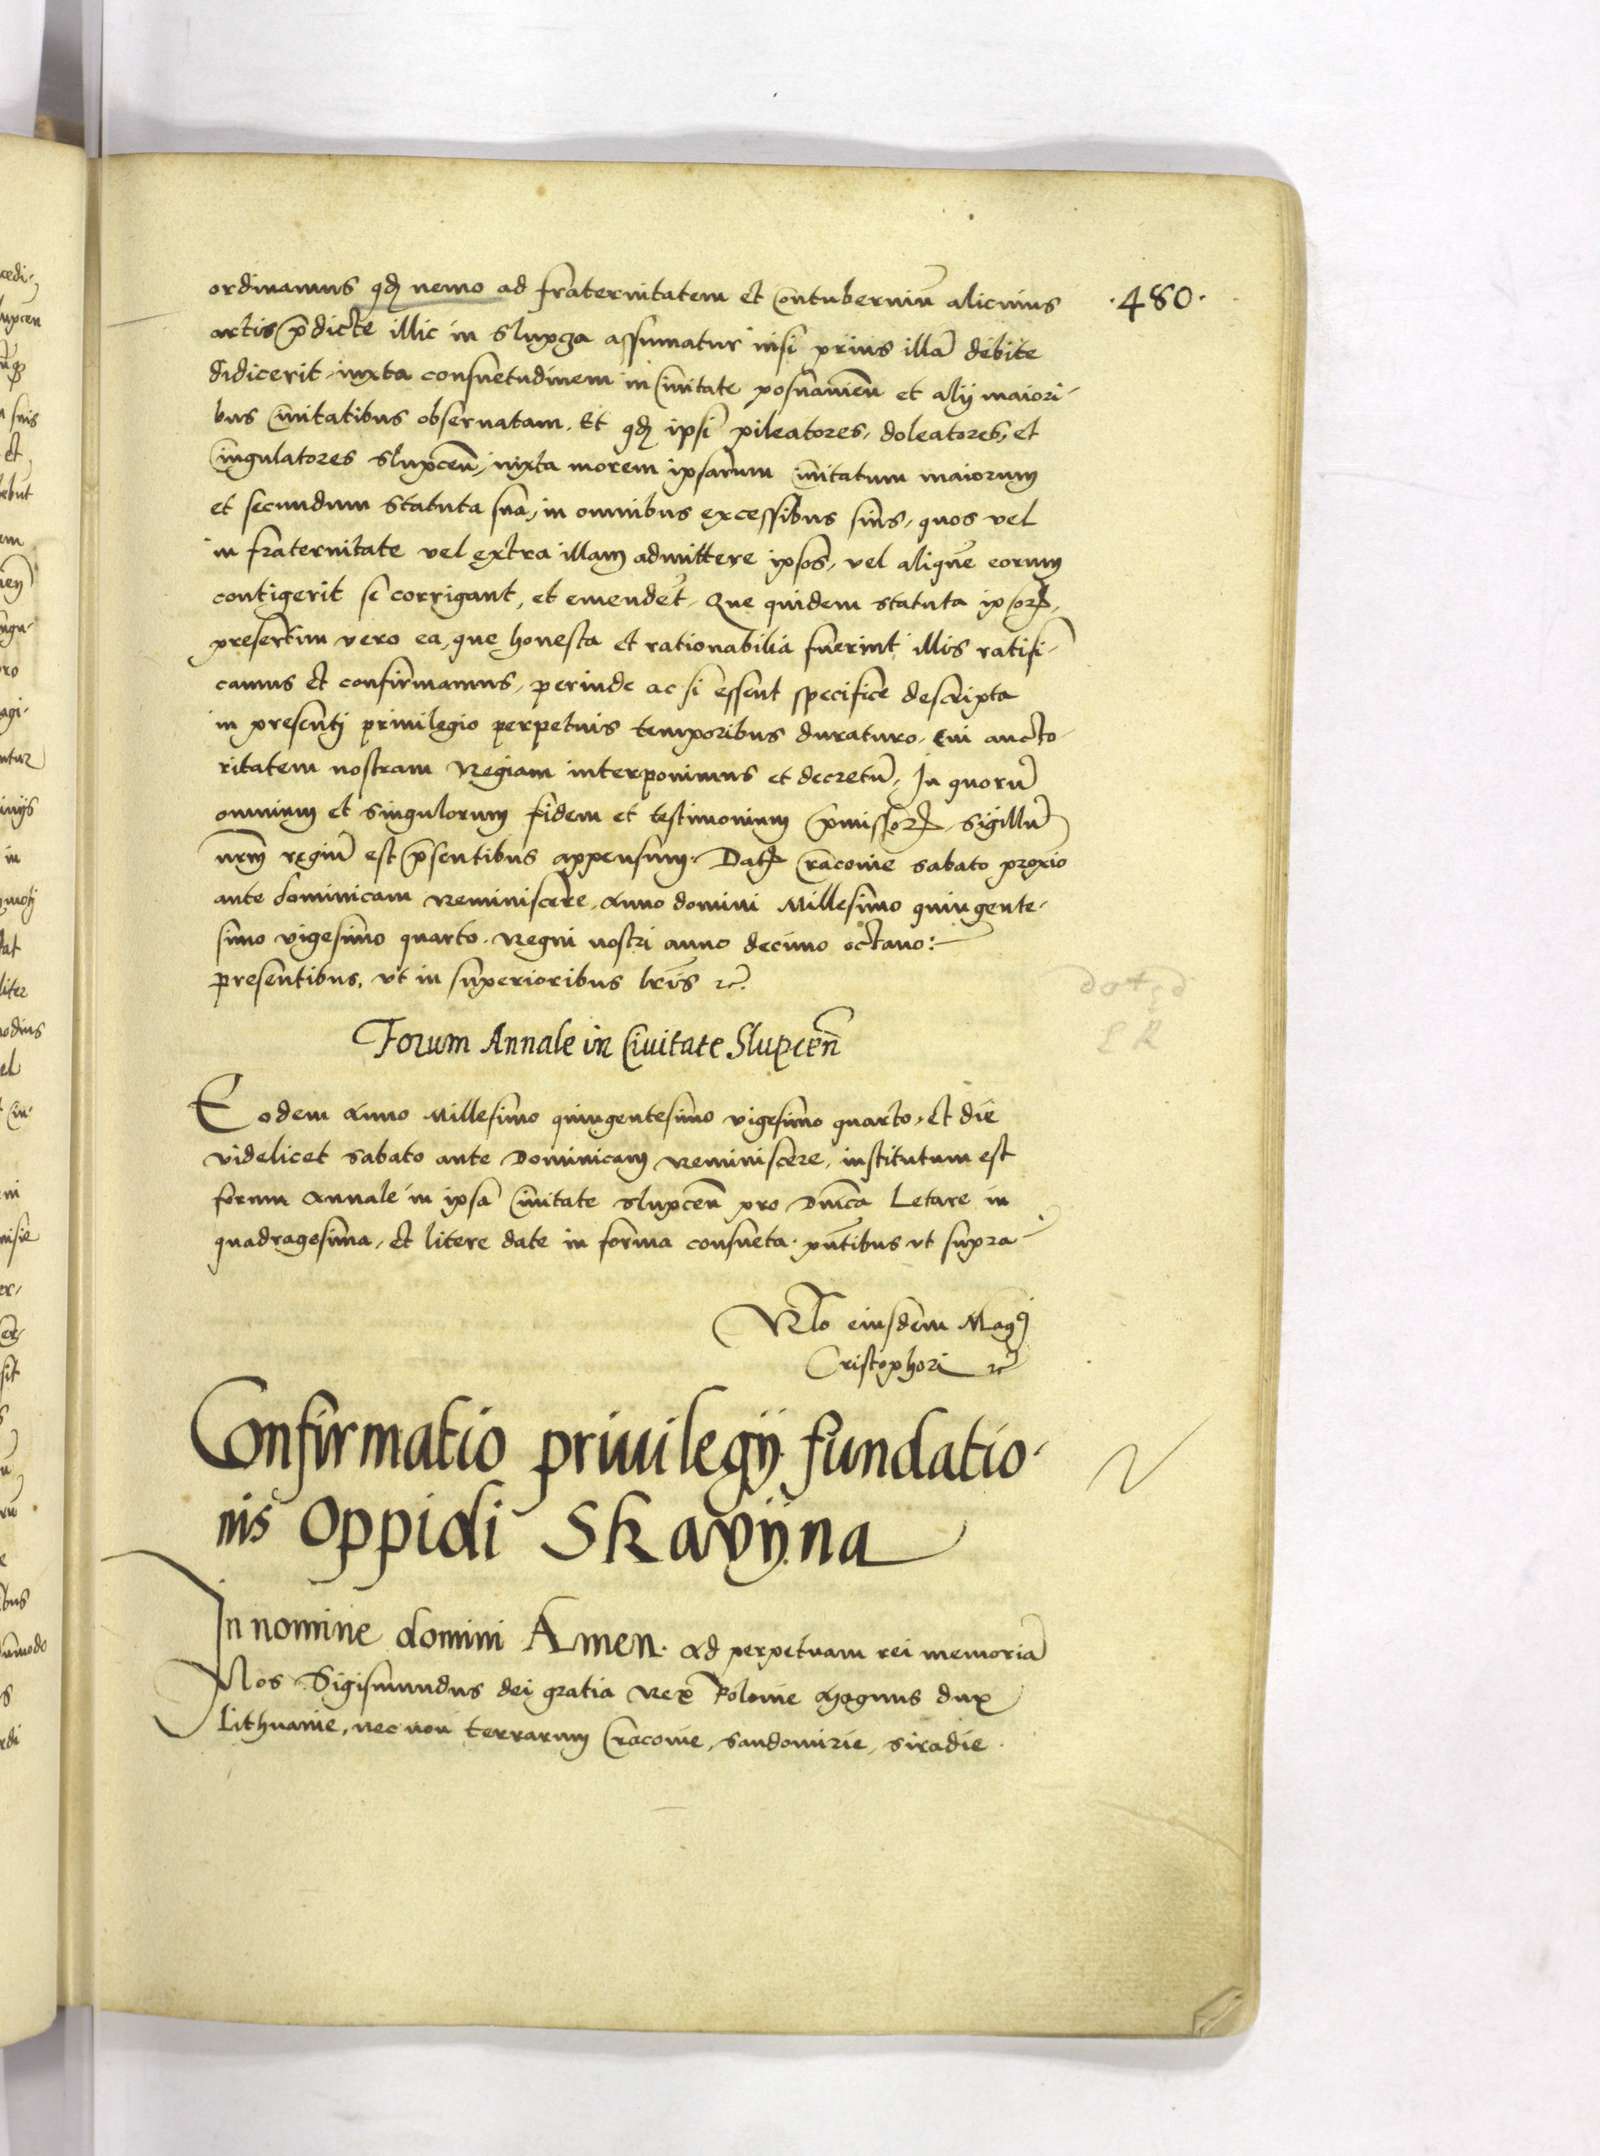 ·480·
ordinamus qd nemo ad fraternitatem et Contuberniũ alicuius
artis p̃dicte illic in Slupcza assumatur nisi prius illã debite
didicerit iuxta consuetudinem in Ciuitate posnanień et alijs maiori-
bus Ciuitatibus obseruatam. Et qd ipsi pileatores, doleatores, et
Cingulatores Slupceń, iuxta morem ipsarum Ciuitatum maiorum
et secundum statuta sua, in omnibus excessibus suis, quos vel
in fraternitate vel extra illam admittere ipsos, vel aliquẽ eorum
contigerit se corrigant, et emendẽt. Que quidem statuta ipsoꝝ,
presertim vero ea, que honesta et rationabilia fuerint illis ratifi-
camus et confirmamus, perinde ac si essent specifice descripta
in presentj priuilegio perpetuis temporibus duraturo. Cui aucto-
ritatem nostram Regiam interponimus et decretũ. In quorũ
omnium et singulorum fidem et testimonium p̃missoꝝ, sigillũ
nr̃m regiũ est p̃sentibus appensum. Datꝝ Cracouie sabato proxio
ante dominicam Reminiscere. Anno domini Millesimo quingente-
simo vigesimo quarto. Regni nostri anno decimo octauo:
presentibus, vt in superioribus lr̃is ꝛc̃.
Forum Annale in Ciuitate Slupceñ
Eodem Anno Millesimo quingentesimo vigesimo quarto, et die
videlicet sabato ante Dominicam Reminiscere, institutum est
forum Annale in ipsa Ciuitate Slupceñ pro Dnĩca Letare in
quadragesima, et litere date in forma consueta. pñtibus vt supra
Rlo eiusdem Mag
Cristophori ꝛc̃
Confirmatio priuilegij fundatio-
nis Oppidi Skavijna
In nomine domini Amen. Ad perpetuam rei memoriã
Nos Sigismundus dei gratia Rex Polonie Magnus dux
Lithuanie, nec non terrarum Cracouie, Sandomirie, Siradie